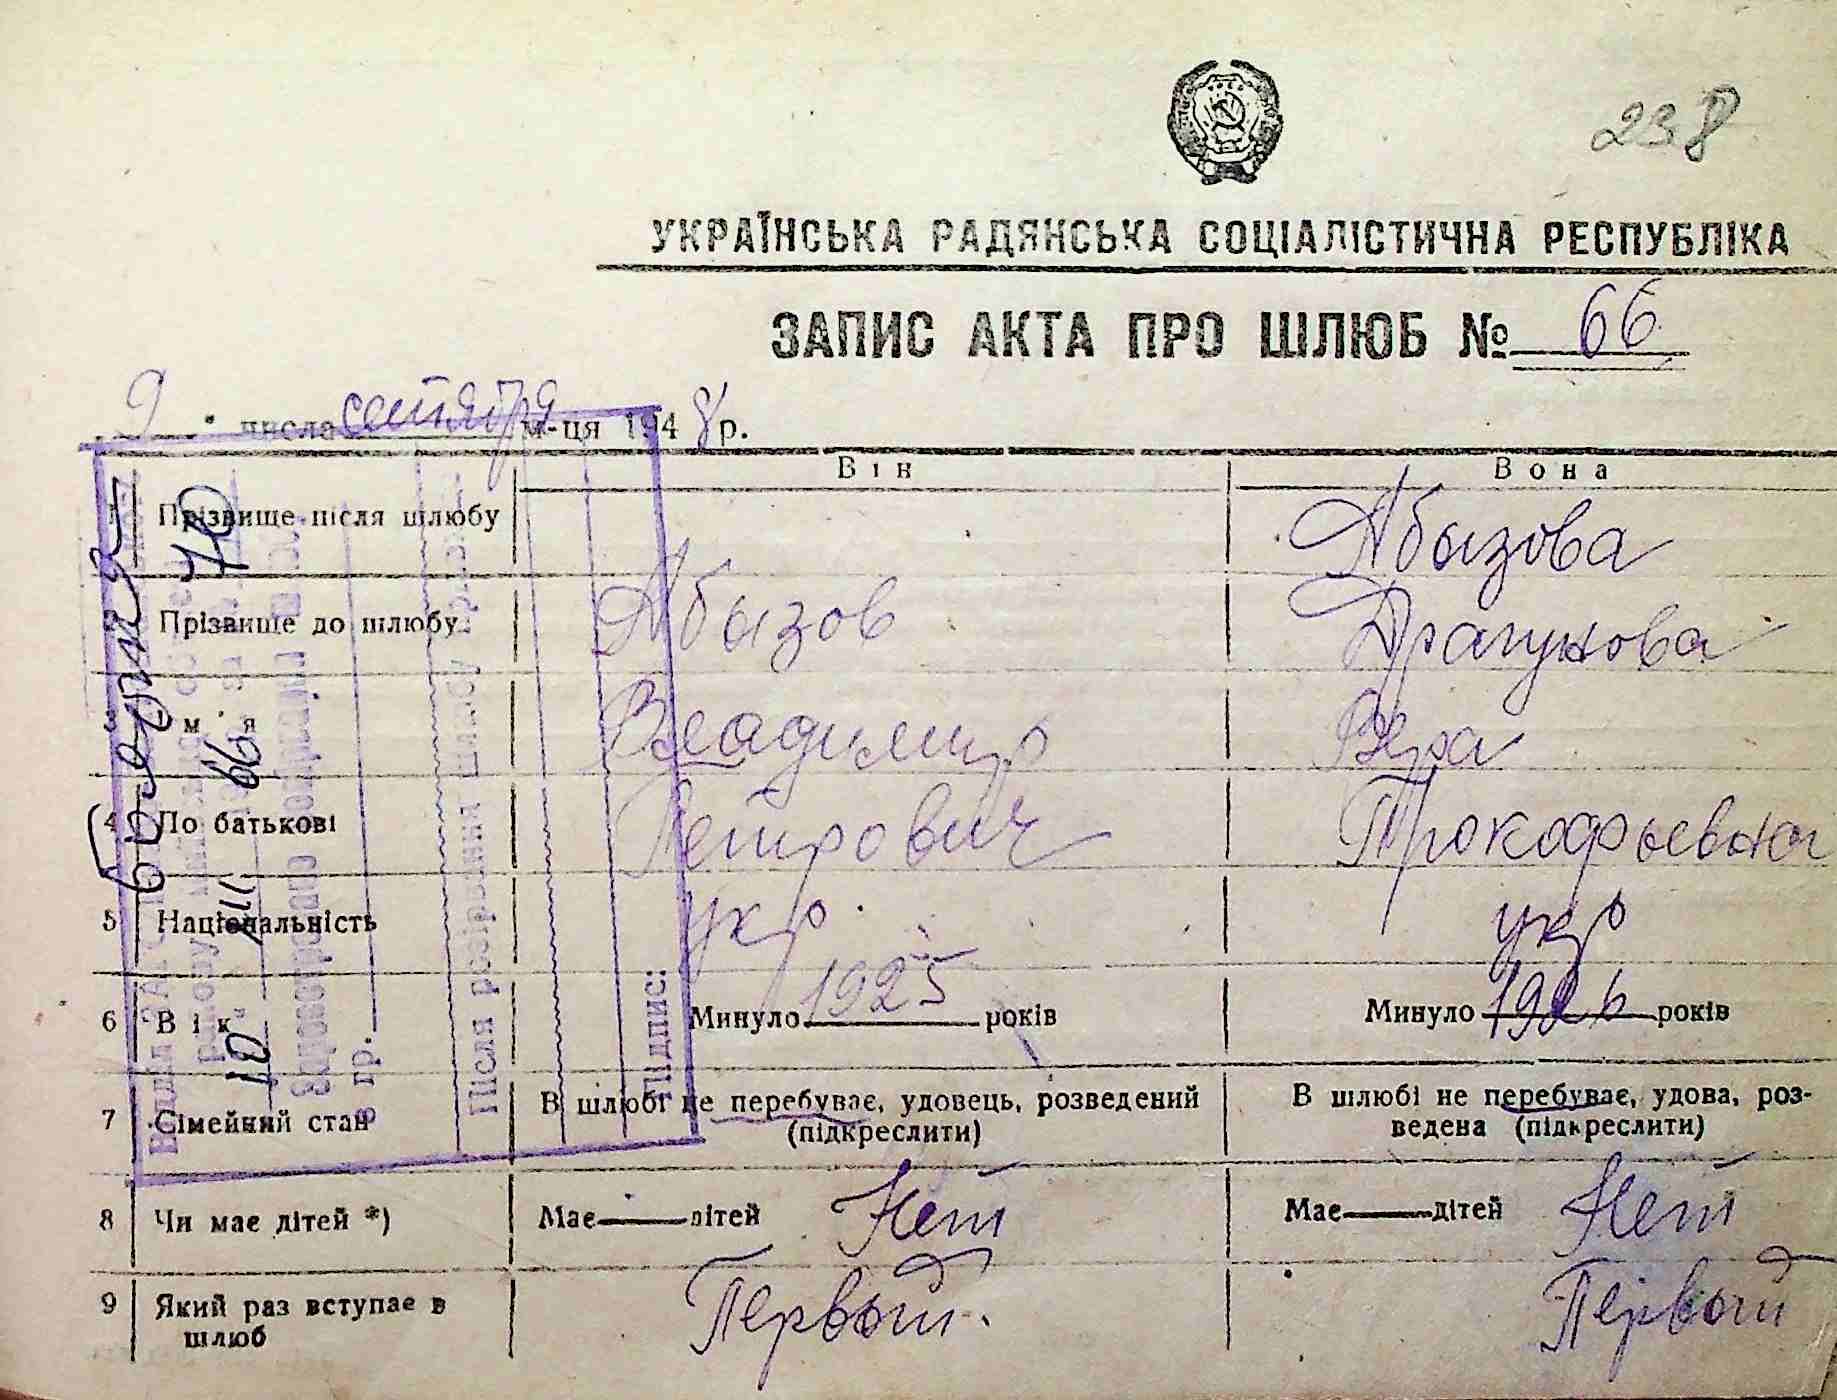 238
УКРАЇНСЬКА РАДЯНСЬКА СОЦІАЛІСТИЧНА РЕСПУБЛІКА
ЗАПИС АКТА ПРО ШЛЮБ № 66
9 числа сентября м-ця 1948 р.
Він Вона
1 Прізвище після шлюбу Абызова
2 Прізвище до шлюбу Абызов Драгунова
3 Ім'я Владимир Вера
4 По батькові Петрович Прокофьевна
5 Національність укр. укр
6 Вік Минуло 1925 років Минуло 1926 років
7 Сімейний стан В шлюбі не перебуває, удовець, розведений (підкреслити) В шлюбі не перебуває, удова, роз-
ведена (підкреслити)
8 Чи має дітей *) Має дітей Нет Має дітей Нет
9 Який раз вступає в Первый. Первый
шлюб
10 III 66
70
Зареєстровано
гр.
Після розірвання шлюбу
Підпис: